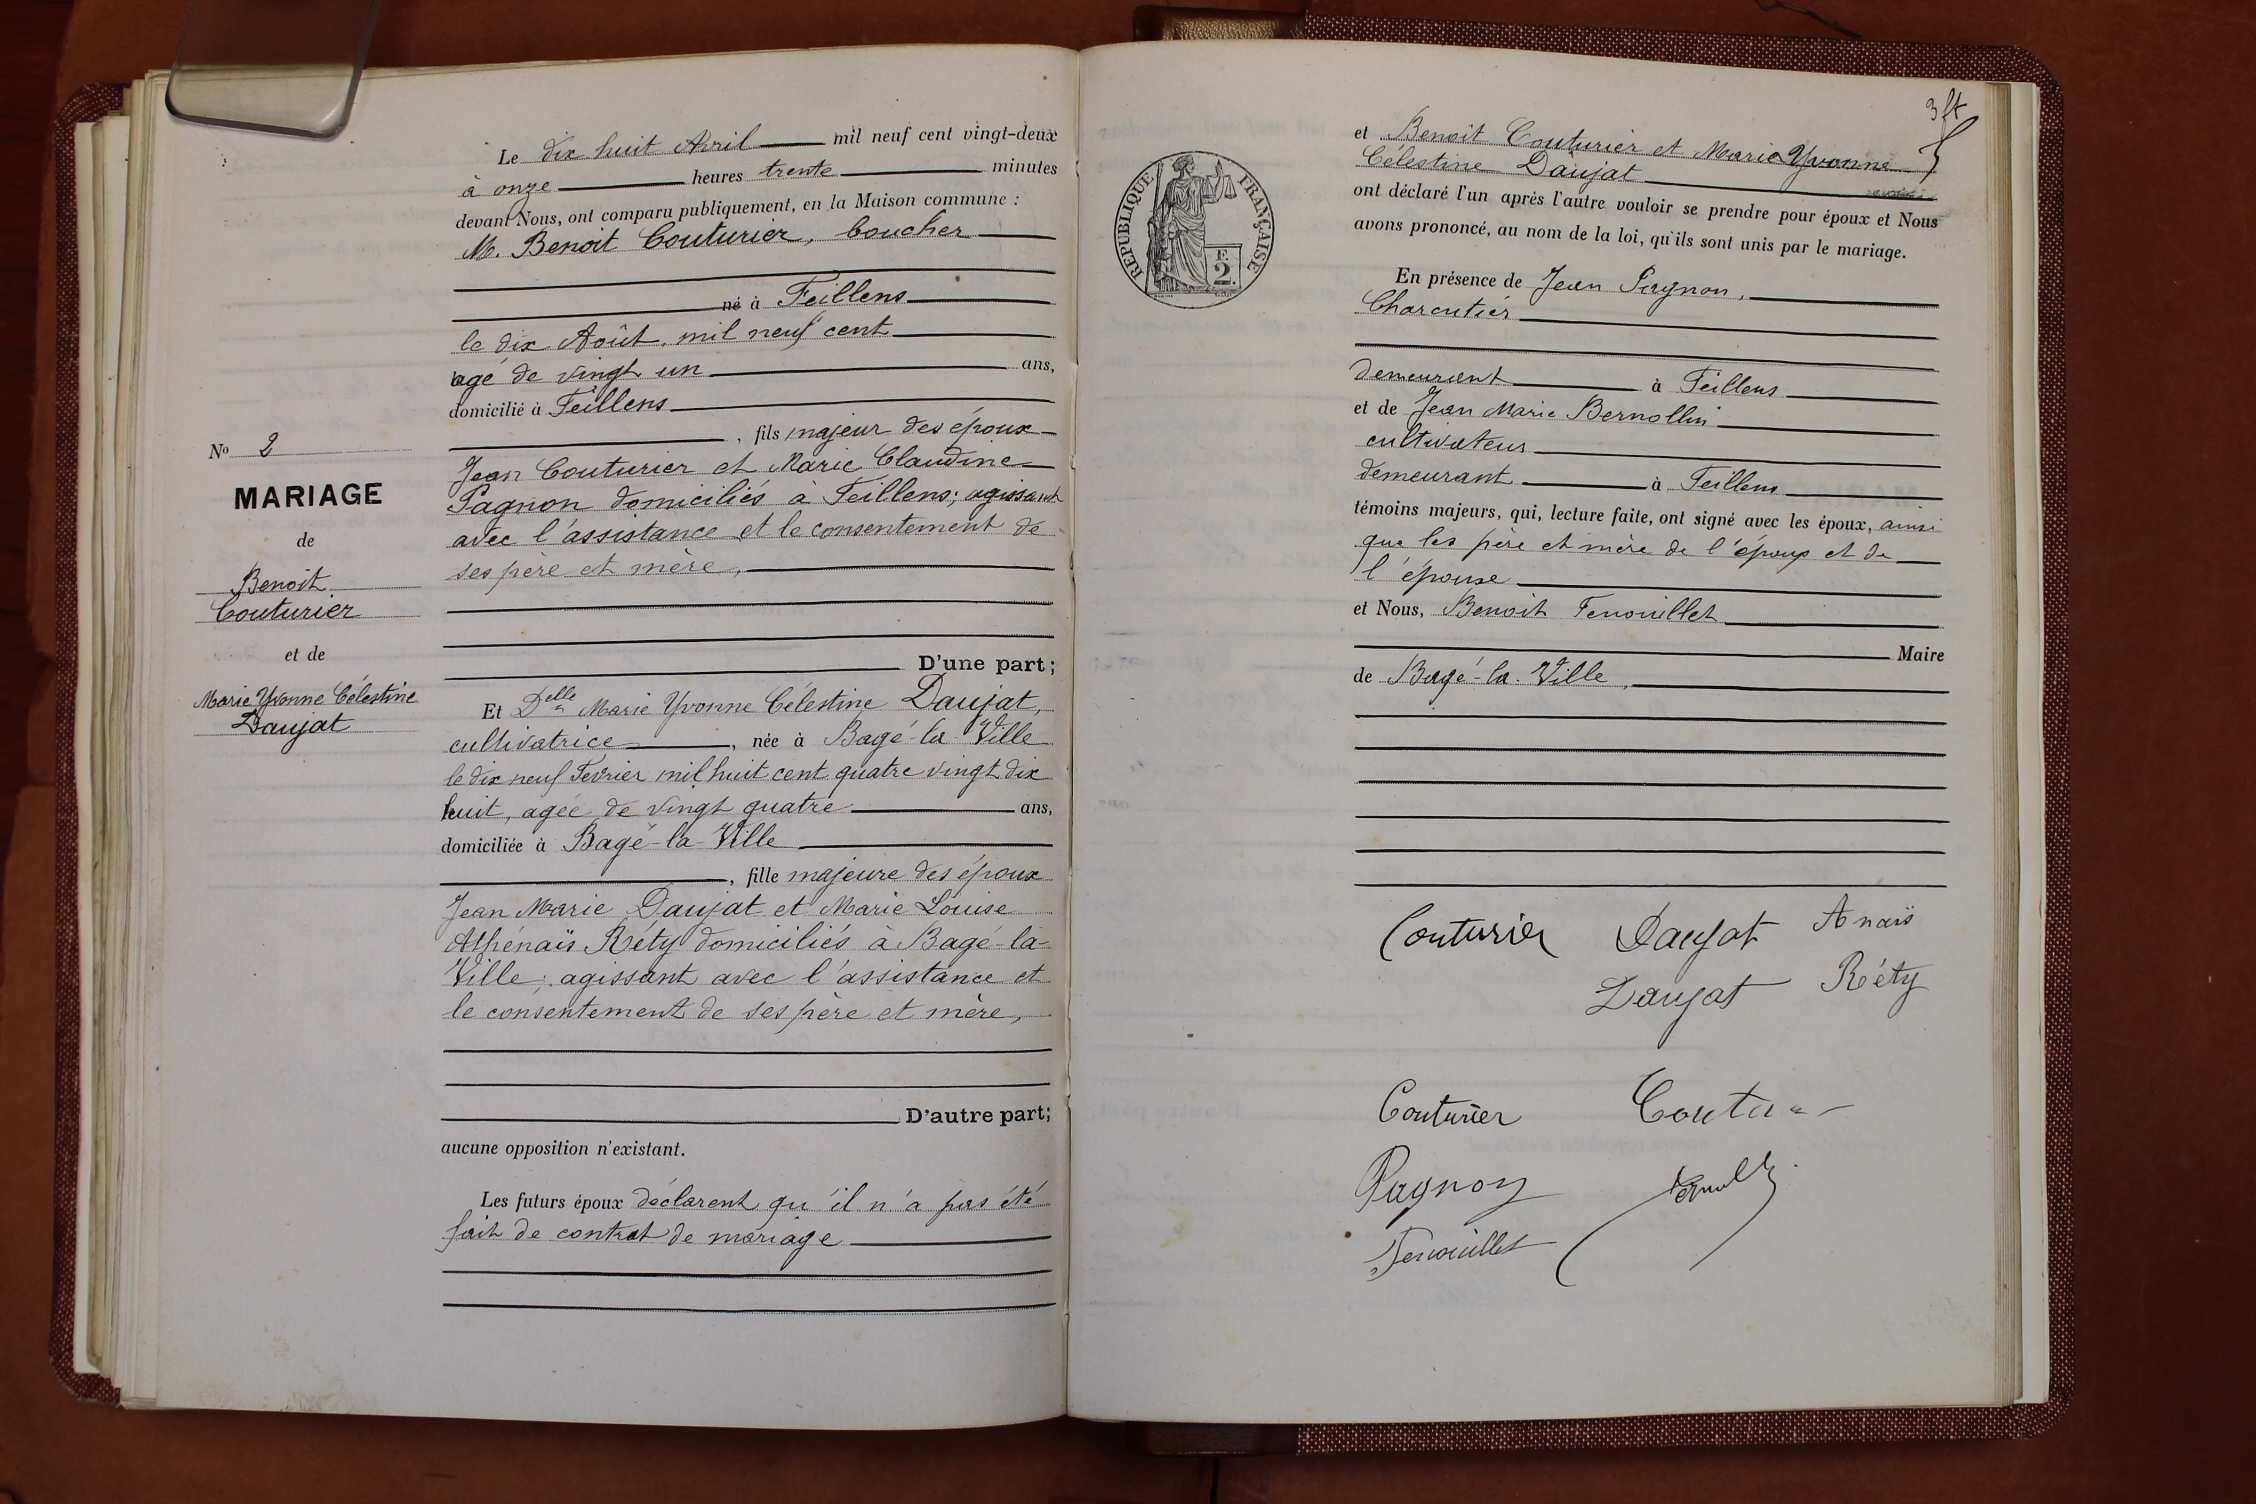 Le dix huit Avril mil neuf cent vingt-deux
à onze heures trente minutes
devant Nous, ont comparu publiquement, en la Maison commune :
M. Benoit Couturier, boucher
né à Feillens
le dix Août mil neuf cent
agé de vingt un ans,
domicilié à Feillens
, fils majeur des époux
Jean Couturier et Marie Claudine
Pagnon domiciliés à Feillens; agissant
avec l'assistance et le consentement de
ses père et mère,
D'une part;
Et Delle Marie Yvonne Célestine Daujat,
cultivatrice, née à Bagé-la-Ville
le dix neuf Fevrier mil huit cent quatre vingt dix
huit, agée de vingt quatre ans,
domiciliée à Bagé-la-Ville
, fille majeure des époux
Jean Marie Daujat et Marie Louise
Athénaïs Réty domiciliés à Bagé-la-
Ville; agissant avec l'assistance et
le consentement de ses père et mère,
D'autre part;
aucune opposition n'existant.
Les futurs époux déclarent qu'il n'a pas été
fait de contrat de mariage
No 2
MARIAGE
de
Benoit
Couturier
et de
Marie Yvonne Célestine
Daujat
3 ft
RÉPUBLIQUE FRANÇAISE
F.
2.
et Benoit Couturier et Marie Yvonne
Célestine Daujat
ont déclaré l'un après l'autre vouloir se prendre pour époux et Nous
avons prononcé, au nom de la loi, qu'ils sont unis par le mariage.
En présence de Jean Pagnon,
Charcutier
demeurant à Feillens
et de Jean Marie Bernollin
cultivateur
demeurant à Feillens
témoins majeurs, qui, lecture faite, ont signé avec les époux, ainsi
que les père et mère de l'époux et de
l'épouse
et Nous, Benoit Fenouillet
Maire
de Bagé-la-Ville,
Couturier Daujat Anaïs
Daujat Réty
Couturier
Pagnon
Fenouillet